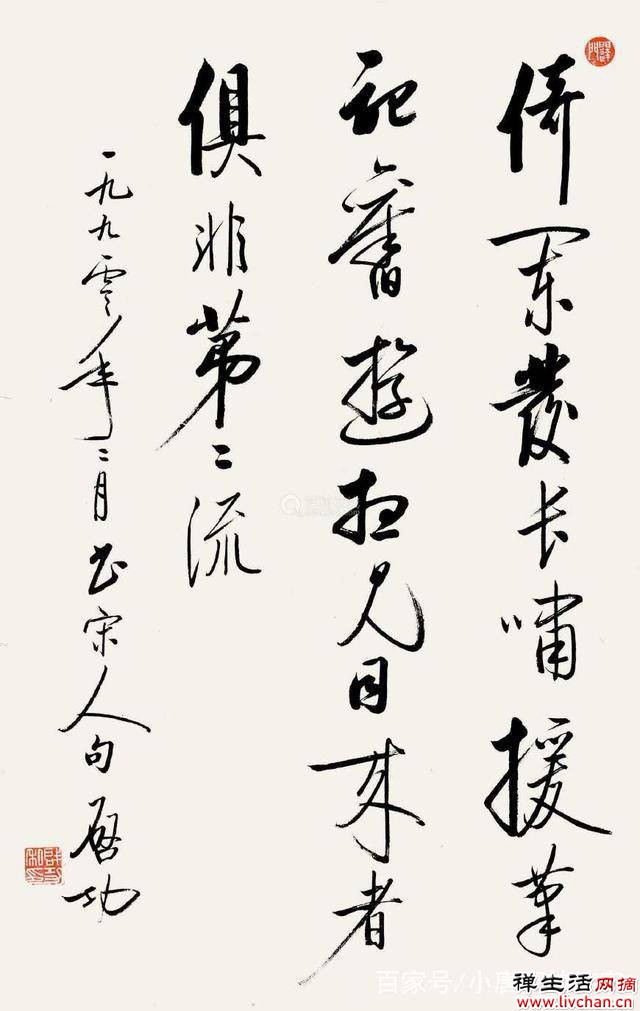 倚阑发长啸援笔
记旧游想见同来者
俱非第二流
一九九零年二月书宋人句 启功
百家号/小唐
禅生活网摘
www.livchan.cn